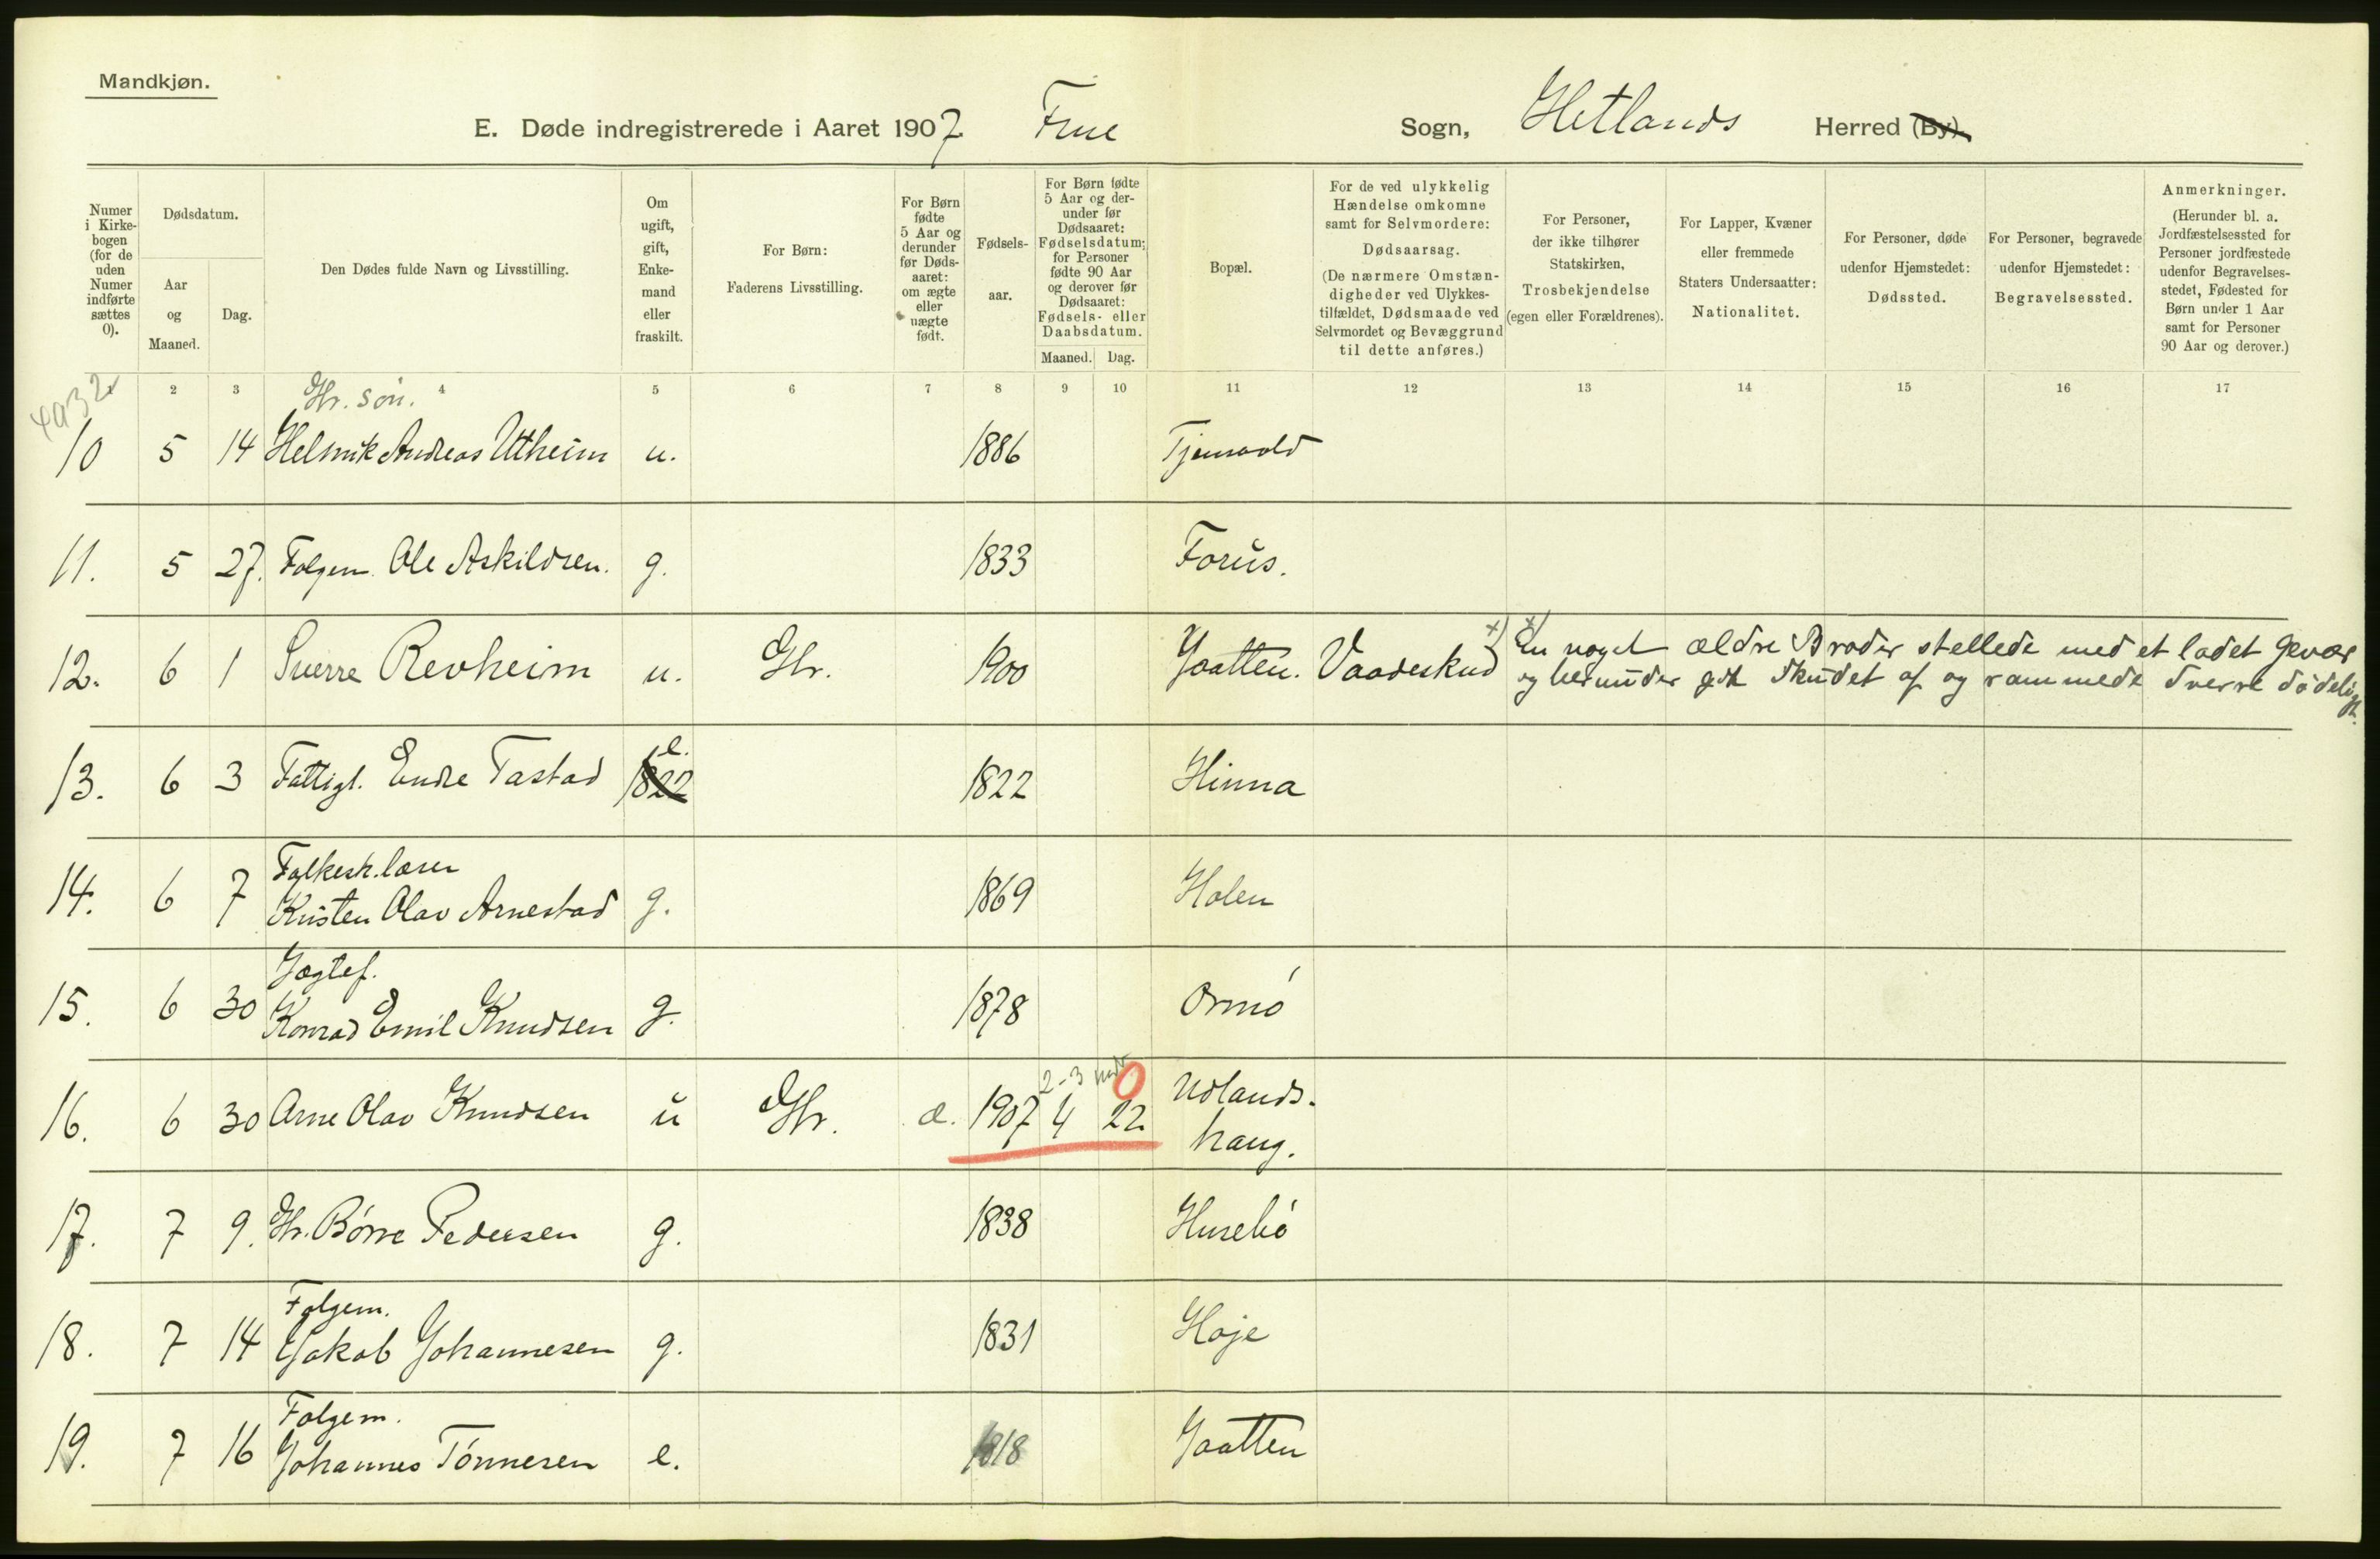 Mandkjøn.
E. Døde indregistrerede i Aaret 1907. Frue Sogn, Hetlands Herred (By).
Numer i Kirkebogen (for de uden Numer indførte sættes 0).
Dødsdatum.
Aar og Maaned.
Dag.
Den Dødes fulde Navn og Livsstilling.
Om ugift, gift, Enkemand eller fraskilt.
For Børn: Faderens Livsstilling.
For Børn fødte 5 Aar og derunder før Dødsaaret: om ægte eller uægte født.
Fødselsaar.
For Børn fødte 5 Aar og derunder før Dødsaaret: Fødselsdatum; for Personer fødte 90 Aar og derover før Dødsaaret: Fødsels- eller Daabsdatum.
Maaned. Dag.
Bopæl.
For de ved ulykkelig Hændelse omkomne samt for Selvmordere: Dødsaarsag. (De nærmere Omstændigheder ved Ulykkestilfældet, Dødsmaade ved Selvmordet og Bevæggrund til dette anføres.)
For Personer, der ikke tilhører Statskirken, Trosbekjendelse (egen eller Forældrenes).
For Lapper, Kvæner eller fremmede Staters Undersaatter: Nationalitet.
For Personer, døde udenfor Hjemstedet: Dødssted.
For Personer, begravede udenfor Hjemstedet: Begravelsessted.
Anmerkninger. (Herunder bl. a. Jordfæstelsessted for Personer jordfæstede udenfor Begravelsesstedet, Fødested for Børn under 1 Aar samt for Personer 90 Aar og derover.)
2 3 4 5 6 7 8 9 10 11 12 13 14 15 16 17
Gbr. søn.
10 5 14 Helmik Andreas Utheim u. 1886 Tjensvold
11. 5 27. Folgem. Ole Askildsen. g. 1833 Forus.
12. 6 1 Sverre Revheim u. Gbr. 1900 Jaatten. Vaadeskud x) x) En noget ældre Broder stellede med et ladet Gevær
og herunder gik Skudet af og rammede Sverre dødeligt.
13. 6 3 Fattigl. Endre Tastad 1822 e. 1822 Hinna
Folkesk.lærer
14. 6 7 Kristen Olav Arnestad g. 1869 Holen
Jagtef.
15. 6 30 Konrad Emil Knudsen g. 1878 Ormø
2-3 0
16. 6 30 Arne Olav Knudsen u Gbr. æ. 1907 4 22 Udlands-
haug.
17. 7 9. Gbr. Børre Pedersen g. 1838 Husebø
Folgem.
18. 7 14 Jakob Johannesen g. 1831 Hoje
Folgem.
19. 7 16 Johannes Tönnesen e. 1818 Jaatten